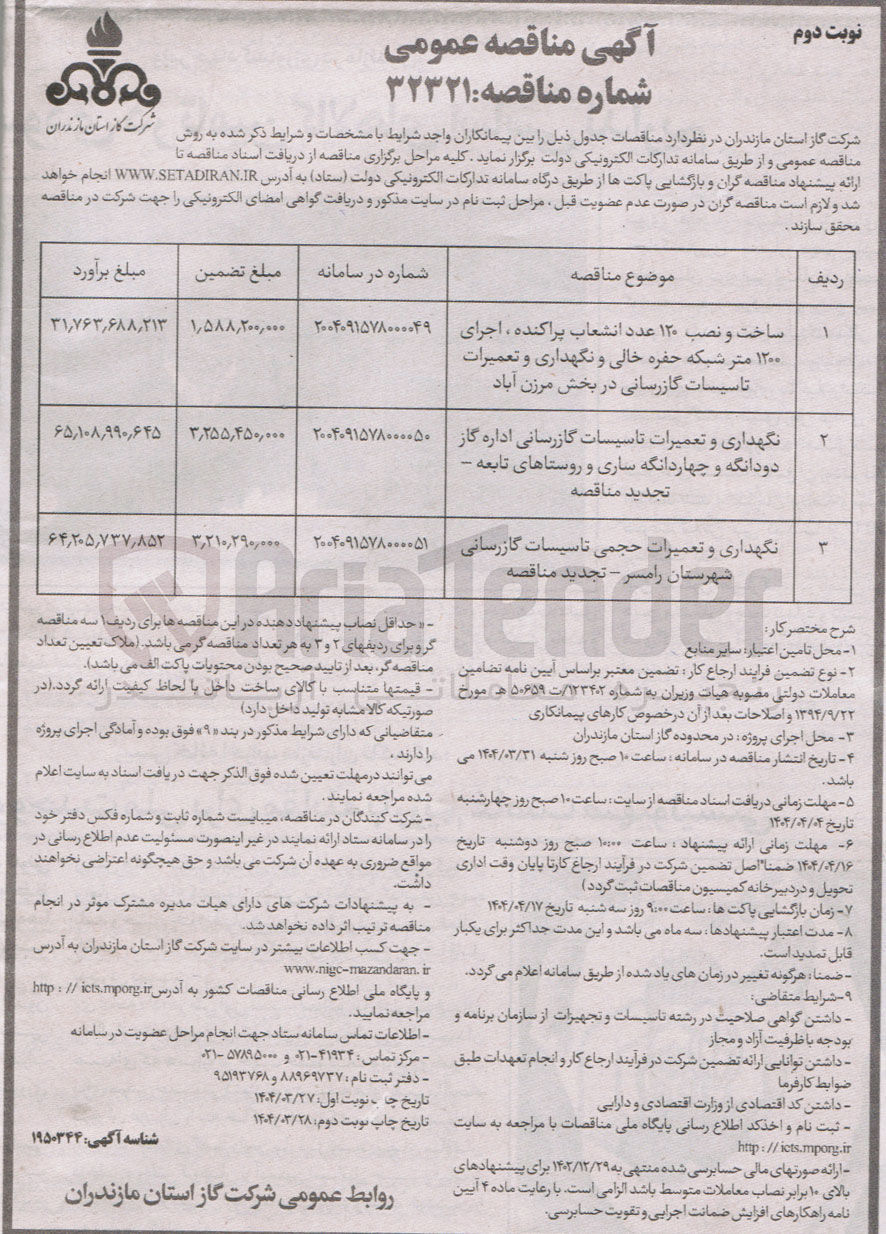 نوبت دوم
آگهی مناقصه عمومی
شماره مناقصه:۳۲۳۲۱
شرکت گاز استان مازندران
شرکت گاز استان مازندران در نظردارد مناقصات جدول ذیل را بین پیمانکاران واجد شرایط با مشخصات و شرایط ذکر شده به روش
مناقصه عمومی و از طریق سامانه تدارکات الکترونیکی دولت برگزار نماید . کلیه مراحل برگزاری مناقصه از دریافت اسناد مناقصه تا
ارائه پیشنهاد مناقصه گران و بازگشایی پاکت ها از طریق درگاه سامانه تدارکات الکترونیکی دولت (ستاد) به آدرس WWW.SETADIRAN.IR انجام خواهد
شد و لازم است مناقصه گران در صورت عدم عضویت قبل ، مراحل ثبت نام در سایت مذکور و دریافت گواهی امضای الکترونیکی را جهت شرکت در مناقصه
محقق سازند .
ردیف موضوع مناقصه شماره در سامانه مبلغ تضمین مبلغ برآورد
۱ ساخت و نصب ۱۲۰ عدد انشعاب پراکنده ، اجرای ۲۰۰۴۰۹۱۵۷۸۰۰۰۰۴۹ ۱,۵۸۸,۲۰۰,۰۰۰ ۳۱,۷۶۳,۶۸۸,۲۱۳
۱۲۰۰ متر شبکه حفره خالی و نگهداری و تعمیرات
تاسیسات گازرسانی در بخش مرزن آباد
۲ نگهداری و تعمیرات تاسیسات گازرسانی اداره گاز ۲۰۰۴۰۹۱۵۷۸۰۰۰۰۵۰ ۳,۲۵۵,۴۵۰,۰۰۰ ۶۵,۱۰۸,۹۹۰,۶۴۵
دودانگه و چهاردانگه ساری و روستاهای تابعه –
تجدید مناقصه
۳ نگهداری و تعمیرات حجمی تاسیسات گازرسانی ۲۰۰۴۰۹۱۵۷۸۰۰۰۰۵۱ ۳,۲۱۰,۲۹۰,۰۰۰ ۶۴,۲۰۵,۷۳۷,۸۵۲
شهرستان رامسر – تجدید مناقصه
AriaTender
شرح مختصر کار :
۱- محل تامین اعتبار: سایر منابع
۲- نوع تضمین فرایند ارجاع کار : تضمین معتبر براساس آیین نامه تضامین
معاملات دولتی مصوبه هیات وزیران به شماره ۱۲۳۴۰۲/ت ۵۰۶۵۹ هـ مورخ
۱۳۹۴/۹/۲۲ و اصلاحات بعد از آن درخصوص کارهای پیمانکاری
۳- محل اجرای پروژه : در محدوده گاز استان مازندران
۴- تاریخ انتشار مناقصه در سامانه : ساعت ۱۰ صبح روز شنبه ۱۴۰۴/۰۳/۳۱ می
باشد .
۵- مهلت زمانی دریافت اسناد مناقصه از سایت : ساعت ۱۰ صبح روز چهارشنبه
تاریخ ۱۴۰۴/۰۴/۰۴
۶- مهلت زمانی ارائه پیشنهاد : ساعت ۱۰:۰۰ صبح روز دوشنبه تاریخ
۱۴۰۴/۰۴/۱۶ ضمنا"اصل تضمین شرکت در فرآیند ارجاع کارتا پایان وقت اداری
تحویل و دردبیرخانه کمیسیون مناقصات ثبت گردد)
۷- زمان بازگشایی پاکت ها : ساعت ۹:۰۰ روز سه شنبه تاریخ ۱۴۰۴/۰۴/۱۷
۸- مدت اعتبار پیشنهادها : سه ماه می باشد و این مدت حداکثر برای یکبار
قابل تمدید است .
- ضمنا: هرگونه تغییر در زمان های یاد شده از طریق سامانه اعلام می گردد.
۹- شرایط متقاضی:
- داشتن گواهی صلاحیت در رشته تاسیسات و تجهیزات از سازمان برنامه و
بودجه با ظرفیت آزاد و مجاز
- داشتن توانایی ارائه تضمین شرکت در فرآیند ارجاع کار و انجام تعهدات طبق
ضوابط کارفرما
- داشتن کد اقتصادی از وزارت اقتصادی و دارایی
- ثبت نام و اخذکد اطلاع رسانی پایگاه ملی مناقصات با مراجعه به سایت
http : // icts.mporg.ir
-ارائه صورتهای مالی حسابرسی شده منتهی به ۱۴۰۲/۱۲/۲۹ برای پیشنهادهای
بالای ۱۰ برابر نصاب معاملات متوسط باشد الزامی است. با رعایت ماده ۴ آیین
نامه راهکارهای افزایش ضمانت اجرایی و تقویت حسابرسی.
- « حداقل نصاب پیشنهاد دهنده در این مناقصه ها برای ردیف ۱ سه مناقصه
گر و برای ردیفهای ۲ و ۳ به هر تعداد مناقصه گر می باشد. (ملاک تعیین تعداد
مناقصه گر، بعد از تایید صحیح بودن محتویات پاکت الف می باشد).
- قیمتها متناسب با کالای ساخت داخل با لحاظ کیفیت ارائه گردد.(در
صورتیکه کالا مشابه تولید داخل دارد)
متقاضیانی که دارای شرایط مذکور در بند « ۹ » فوق بوده و آمادگی اجرای پروژه
را دارند ،
می توانند درمهلت تعیین شده فوق الذکر جهت دریافت اسناد به سایت اعلام
شده مراجعه نمایند .
- شرکت کنندگان در مناقصه، میبایست شماره ثابت و شماره فکس دفتر خود
را در سامانه ستاد ارائه نمایند در غیر اینصورت مسئولیت عدم اطلاع رسانی در
مواقع ضروری به عهده آن شرکت می باشد و حق هیچگونه اعتراضی نخواهند
داشت.
- به پیشنهادات شرکت های دارای هیات مدیره مشترک موثر در انجام
مناقصه ترتیب اثر داده نخواهد شد.
- جهت کسب اطلاعات بیشتر در سایت شرکت گاز استان مازندران به آدرس
www.nigc-mazandaran.ir
و پایگاه ملی اطلاع رسانی مناقصات کشور به آدرس http : // icts.mporg.ir
مراجعه نمایید.
- اطلاعات تماس سامانه ستاد جهت انجام مراحل عضویت در سامانه
- مرکز تماس : ۴۱۹۳۴-۰۲۱ و ۵۷۸۹۵۰۰۰-۰۲۱
- دفتر ثبت نام : ۸۸۹۶۹۷۳۷ و ۹۵۱۹۳۷۶۸
تاریخ چاپ نوبت اول: ۱۴۰۴/۰۳/۲۷
تاریخ چاپ نوبت دوم: ۱۴۰۴/۰۳/۲۸
شناسه آگهی: ۱۹۵۰۳۴۴
روابط عمومی شرکت گاز استان مازندران